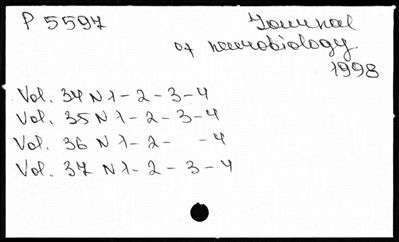 P 5597 Journal
of neurobiology
1998
Vol. 34 N 1 - 2 - 3 - 4
Vol. 35 N 1 - 2 - 3 - 4
Vol. 36 N 1 - 2 -   - 4
Vol. 37 N 1 - 2 - 3 - 4